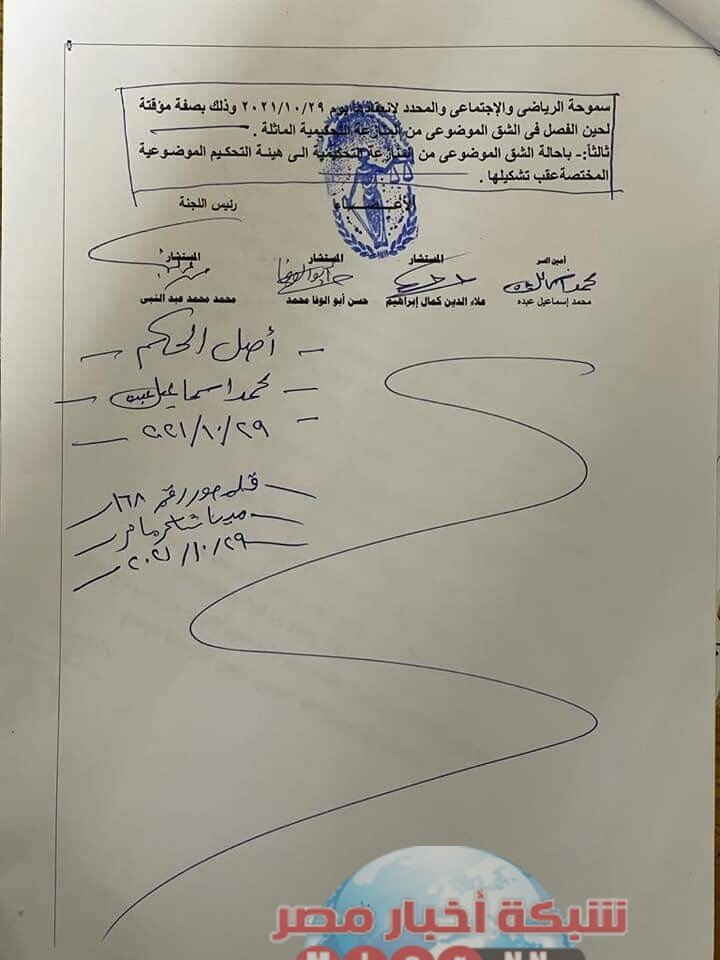 سموحة الرياضى والإجتماعى والمحدد لإنعقادها يوم ٢٠٢١/١٠/٢٩ وذلك بصفة مؤقتة
لحين الفصل فى الشق الموضوعى من المنازعة التحكيمية الماثلة .
ثالثاً:- باحالة الشق الموضوعى من المنازعة التحكيمية الى هيئة التحكيم الموضوعية
المختصة عقب تشكيلها .
الأعضاء رئيس اللجنة
أمين السر المستشار المستشار المستشار
محمد إسماعيل عبده علاء الدين كمال إبراهيم حسن أبو الوفا محمد محمد محمد عبد النبى
أصل الحكم
محمد اسماعيل عبده
٢٠٢١/١٠/٢٩
رقم ١٦٨
٢٠٢١/١٠/٢٩
شبكة أخبار مصر